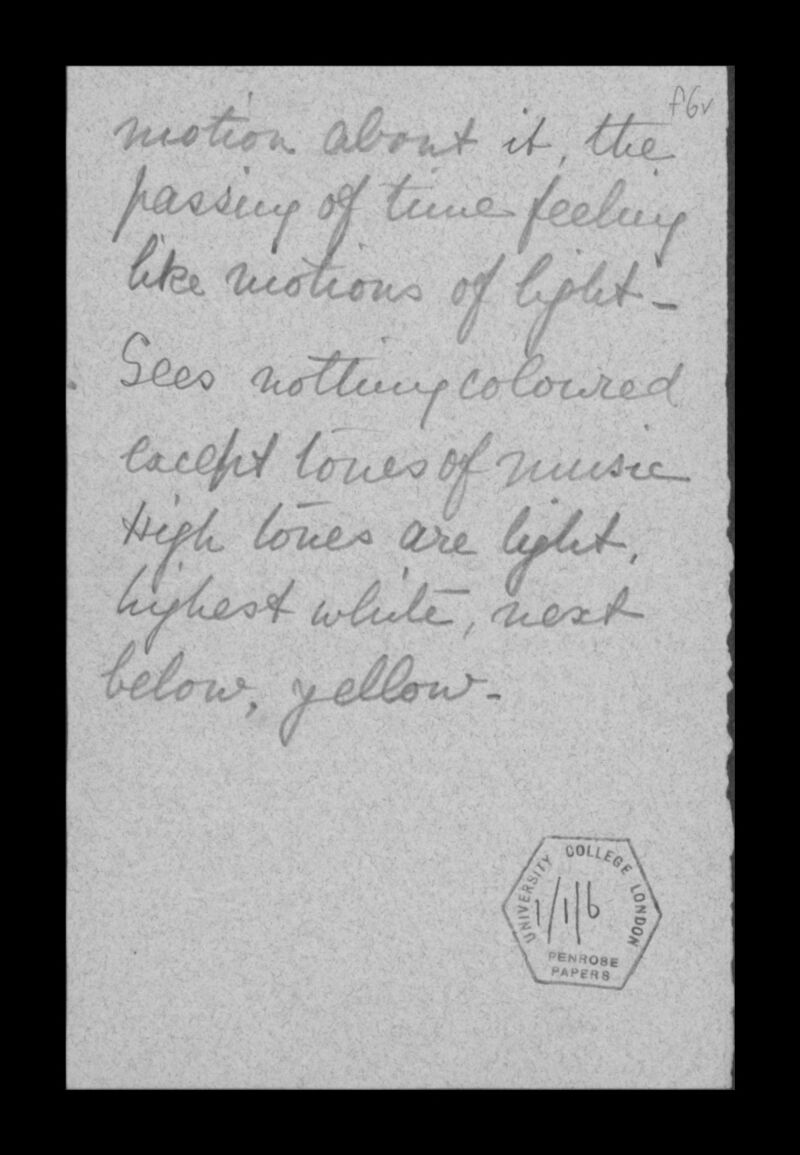 f6v
motion about it, the
passing of time feeling
like motions of light -
Sees nothing coloured
except tones of music
High tones are light,
highest white, next
below, yellow -
UNIVERSITY COLLEGE LONDON
1/1/6
PENROSE
PAPERS